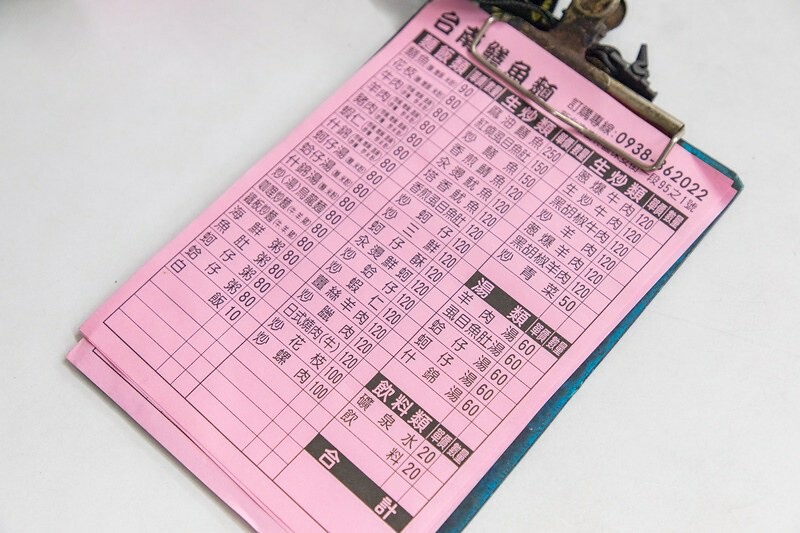 台南鱔魚麵
訂購專線:0938-862022
麵飯類 單價 數量
鱔魚 90
花枝 80
牛肉 80
羊肉 80
豬肉 80
蝦仁 80
什錦 80
蚵仔湯 80
蛤仔湯 80
什錦湯 80
炒(湯)烏龍麵 80
海鮮粥 80
魚肚粥 80
蚵仔粥 80
蛤仔粥 80
白飯 10
生炒類 單價 數量
麻油鱔魚 250
紅燒虱目魚肚 150
炒鱔魚 150
香煎鯖魚 120
汆燙魷魚 120
塔香魷魚 120
香煎虱目魚肚 120
炒蚵仔 120
炒三鮮 120
蚵仔酥 120
汆燙鮮蚵 120
炒蛤仔 120
炒蝦仁 120
薑絲羊肉 120
炒鹹肉 120
日式燒肉(牛) 120
炒花枝 100
炒螺肉 100
生炒類 單價 數量
蔥爆牛肉 120
生炒牛肉 120
黑胡椒牛肉 120
炒羊肉 120
蔥爆羊肉 120
黑胡椒羊肉 120
炒青菜 50
湯類 單價 數量
羊肉湯 60
虱目魚肚湯 60
蛤仔湯 60
蚵仔湯 60
什錦湯 60
飲料類 單價 數量
礦泉水 20
飲料 20
合計